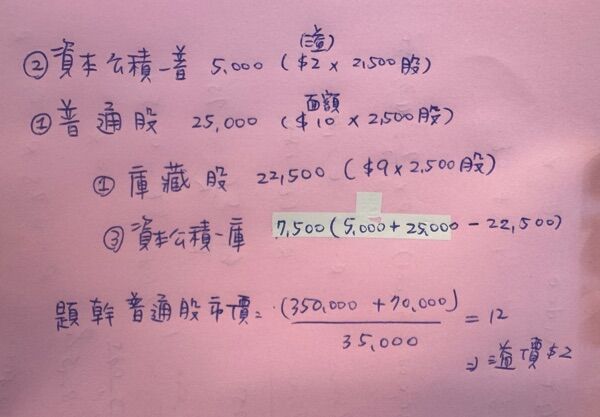 (溢)
② 資本公積-普 5,000 ($2 x 2,500股)
面額
① 普通股 25,000 ($10 x 2,500股)
① 庫藏股 22,500 ($9 x 2,500股)
③ 資本公積-庫 7,500 (5,000 + 25,000 - 22,500)
題幹普通股市價 = (350,000 + 70,000) / 35,000 = 12
⇒ 溢價 $2